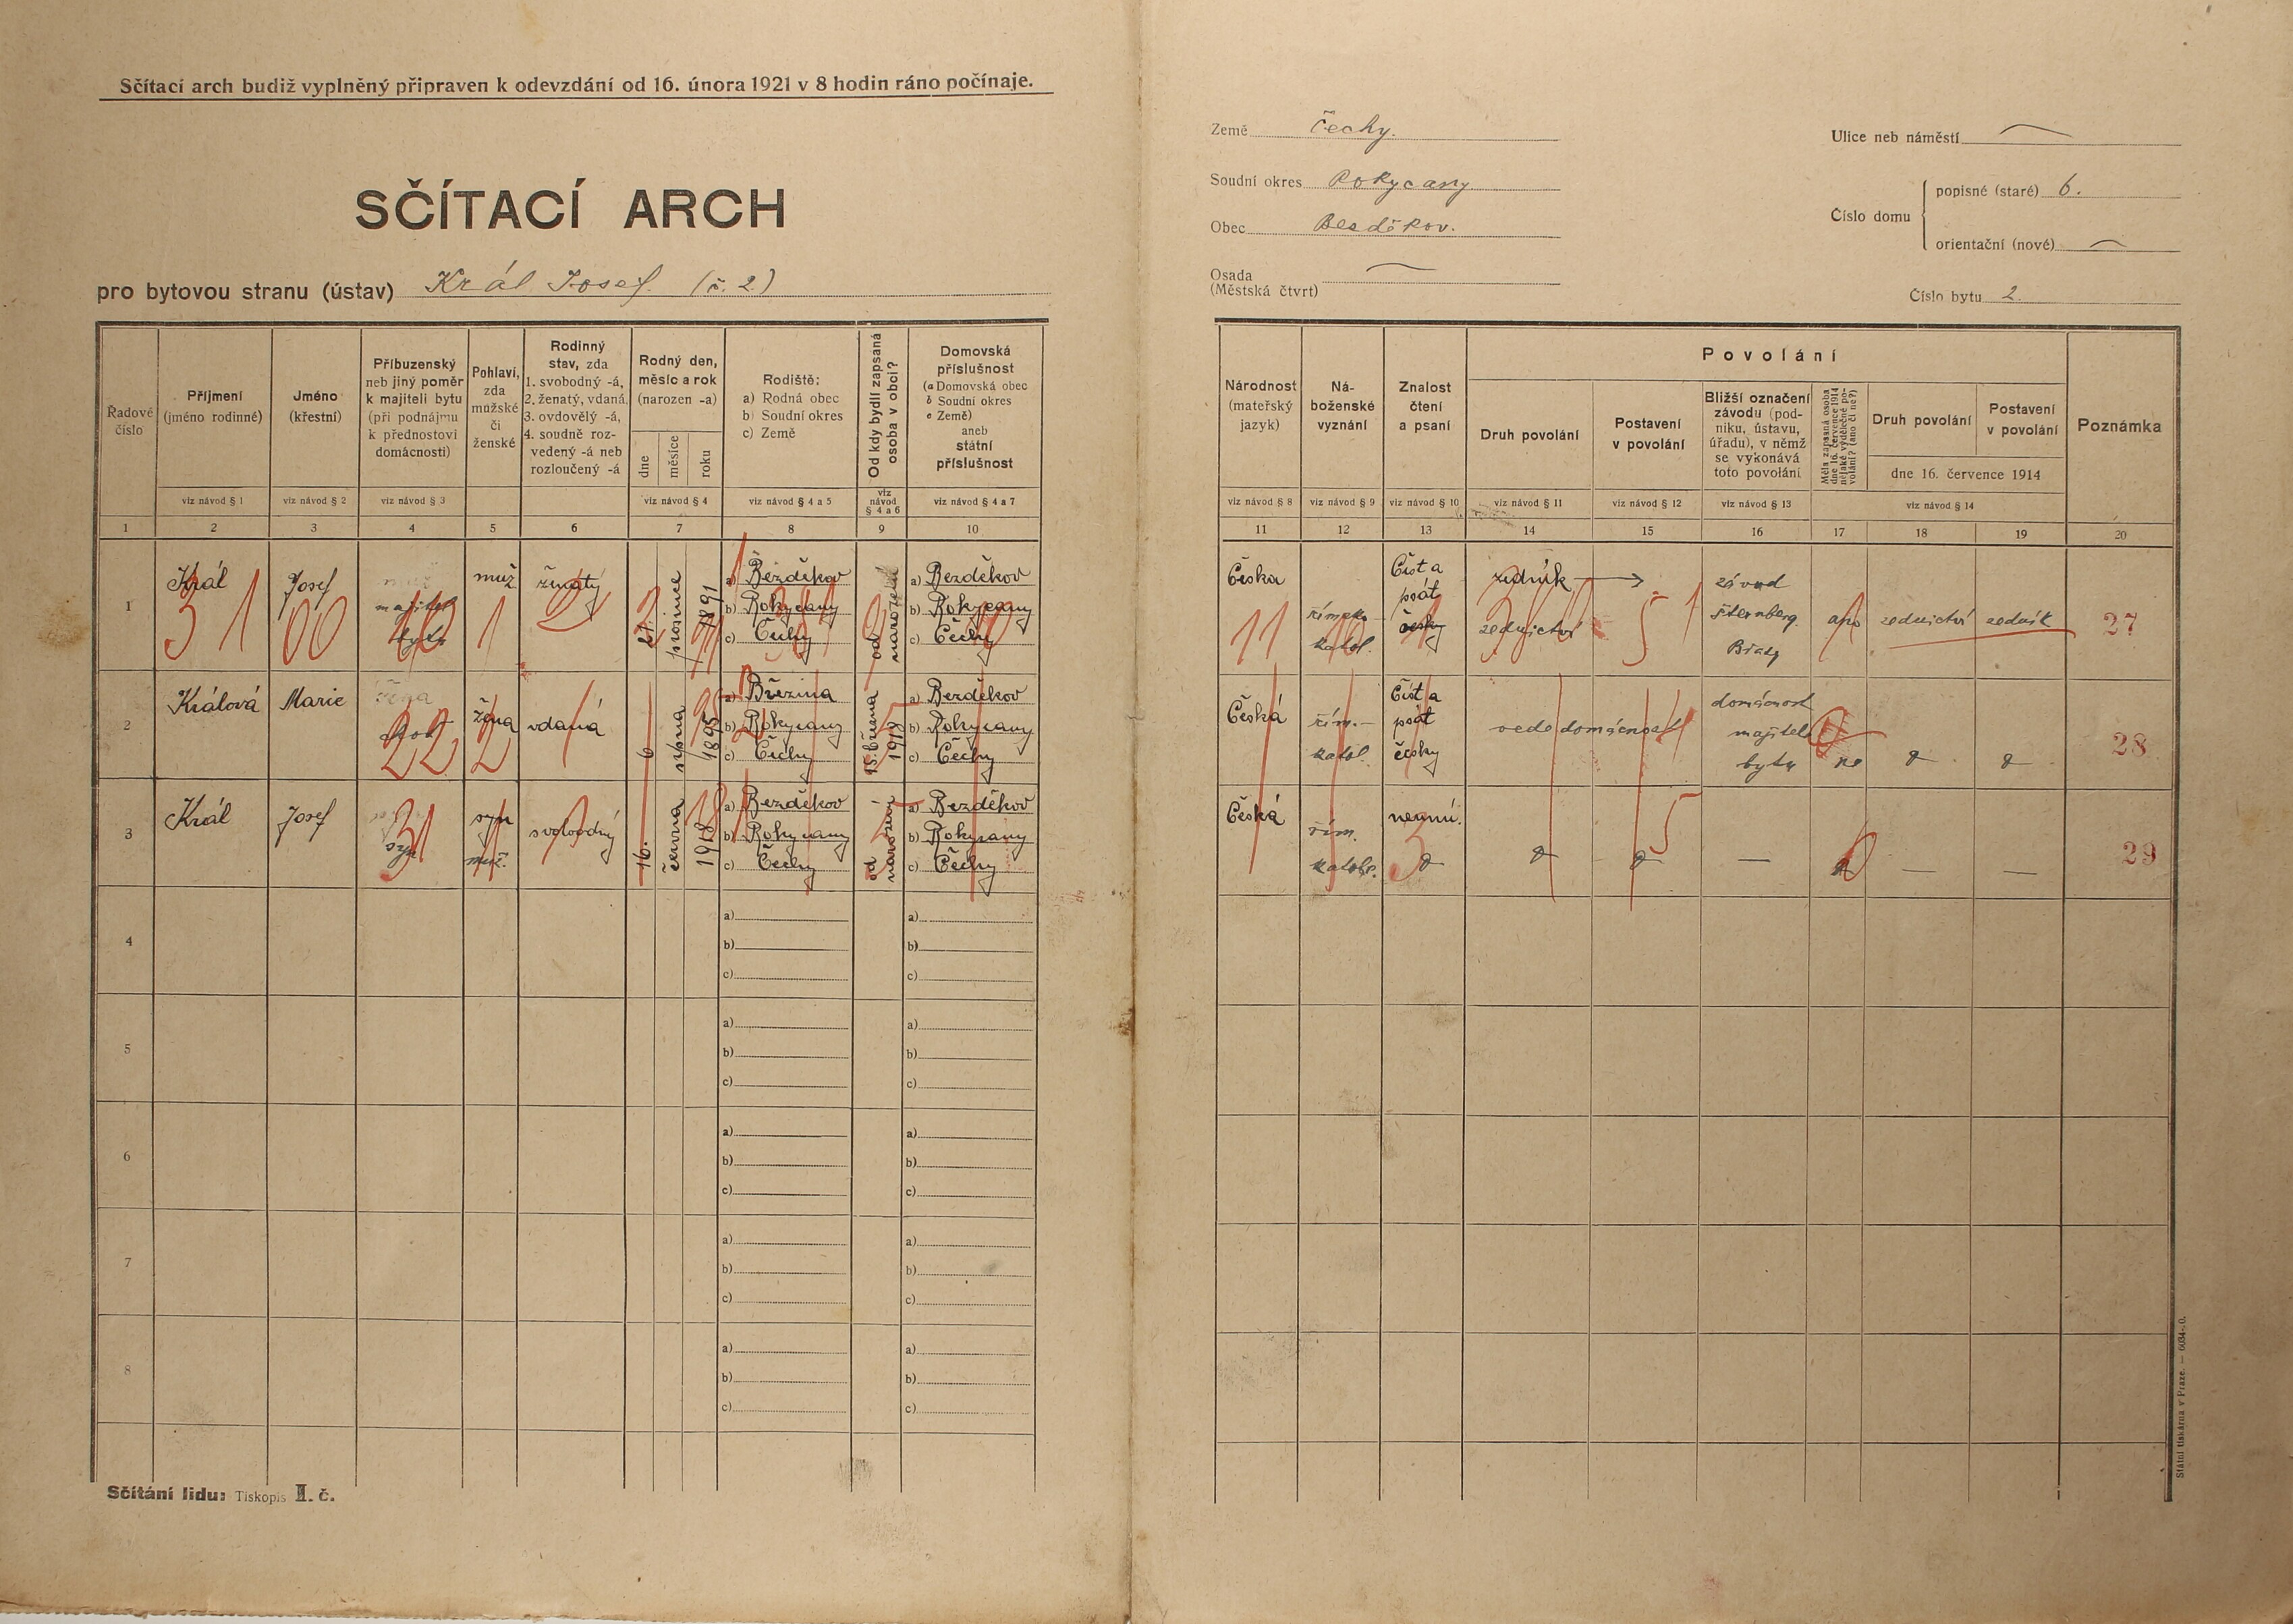 Sčítací arch budiž vyplněný připraven k odevzdání od 16. února 1921 v 8 hodin ráno počínaje.
SČÍTACÍ ARCH
pro bytovou stranu (ústav) Král Josef. (č. 2.)
Země Čechy.
Soudní okres Rokycany
Obec Bezděkov.
Osada
(Městská čtvrt)
Ulice neb náměstí
Číslo domu
popisné (staré) 6.
orientační (nové)
Číslo bytu 2.
Řadové
číslo
Příjmení
(jméno rodinné)
Jméno
(křestní)
Příbuzenský
neb jiný poměr
k majiteli bytu
(při podnájmu
k přednostovi
domácnosti)
Pohlaví,
zda
mužské
či
ženské
Rodinný
stav, zda
1. svobodný -á,
2. ženatý, vdaná,
3. ovdovělý -á,
4. soudně roz-
vedený -á neb
rozloučený -á
Rodný den,
měsíc a rok
(narozen -a)
dne
měsíce
roku
Rodiště:
a) Rodná obec
b) Soudní okres
c) Země
Od kdy bydlí zapsaná
osoba v obci?
Domovská
příslušnost
(a Domovská obec
b Soudní okres
c Země)
aneb
státní
příslušnost
viz návod § 1
viz návod § 2
viz návod § 3
viz návod § 4
viz návod § 4 a 5
viz
návod
§ 4 a 6
viz návod § 4 a 7
1 2 3 4 5 6 7 8 9 10
Národnost
(mateřský
jazyk)
Ná-
boženské
vyznání
Znalost
čtení
a psaní
Povolání
Druh povolání
Postavení
v povolání
Bližší označení
závodu (pod-
niku, ústavu,
úřadu), v němž
se vykonává
toto povolání
Měla zapsaná osoba
dne 16. července 1914
nějaké výdělečné po-
volání? (ano či ne?)
Druh povolání
Postavení
v povolání
dne 16. července 1914
Poznámka
viz návod § 8
viz návod § 9
viz návod § 10
viz návod § 11
viz návod § 12
viz návod § 13
viz návod § 14
11 12 13 14 15 16 17 18 19 20
1
Král
Josef
majitel
bytu
muž
ženatý
27.
prosince
1891
a) Bezděkov
b) Rokycany
c) Čechy
od
narození
a) Bezděkov
b) Rokycany
c) Čechy
Česka
římsko-
katol.
Číst a
psát
česky
zedník
zednictví
závod
Šternberg.
Břasy
ano
zednictví
zedník
27
2
Králová
Marie
žena
vdaná
6
srpna
1895
a) Březina
b) Rokycany
c) Čechy
15. března
a) Bezděkov
b) Rokycany
c) Čechy
Česká
řím.-
katol.
Číst a
psát
česky
vede domácnost
domácnost
majitele
bytu
ne
28
3
Král
Josef
syn
syn
muž.
svobodný
16.
června
1918
a) Bezděkov
b) Rokycany
c) Čechy
od
narození
a) Bezděkov
b) Rokycany
c) Čechy
Česká
řím.
katol.
neumí.
29
4
a)
b)
c)
a)
b)
c)
5
a)
b)
c)
a)
b)
c)
6
a)
b)
c)
a)
b)
c)
7
a)
b)
c)
a)
b)
c)
8
a)
b)
c)
a)
b)
c)
Sčítání lidu: Tiskopis II. č.
Státní tiskárna v Praze. — 6034-0.